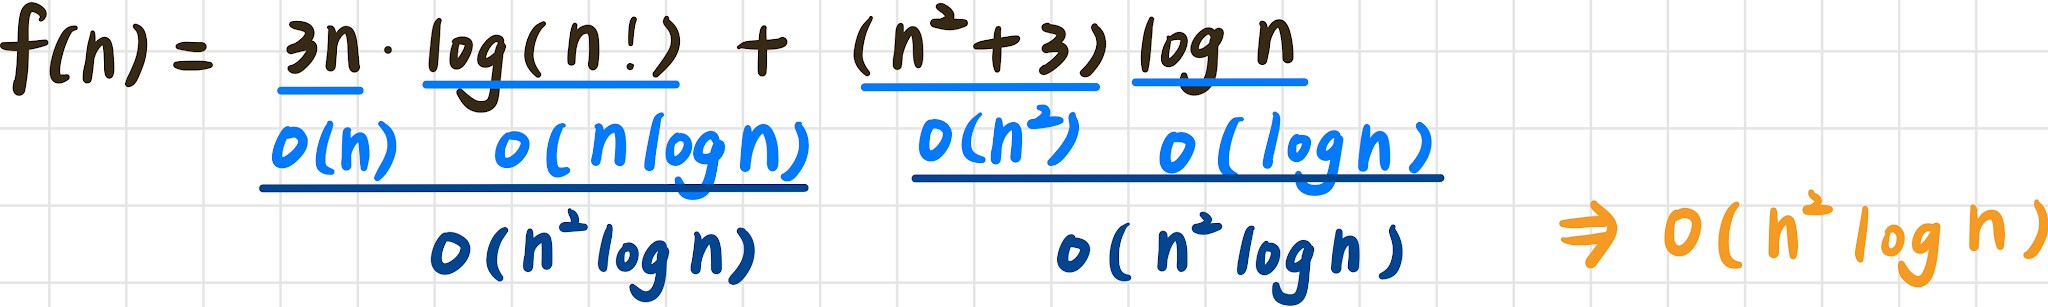 f(n) = 3n · log(n!) + (n²+3) log n
O(n) O(n log n) O(n²) O(log n)
O(n² log n) O(n² log n) ⇒ O(n² log n)